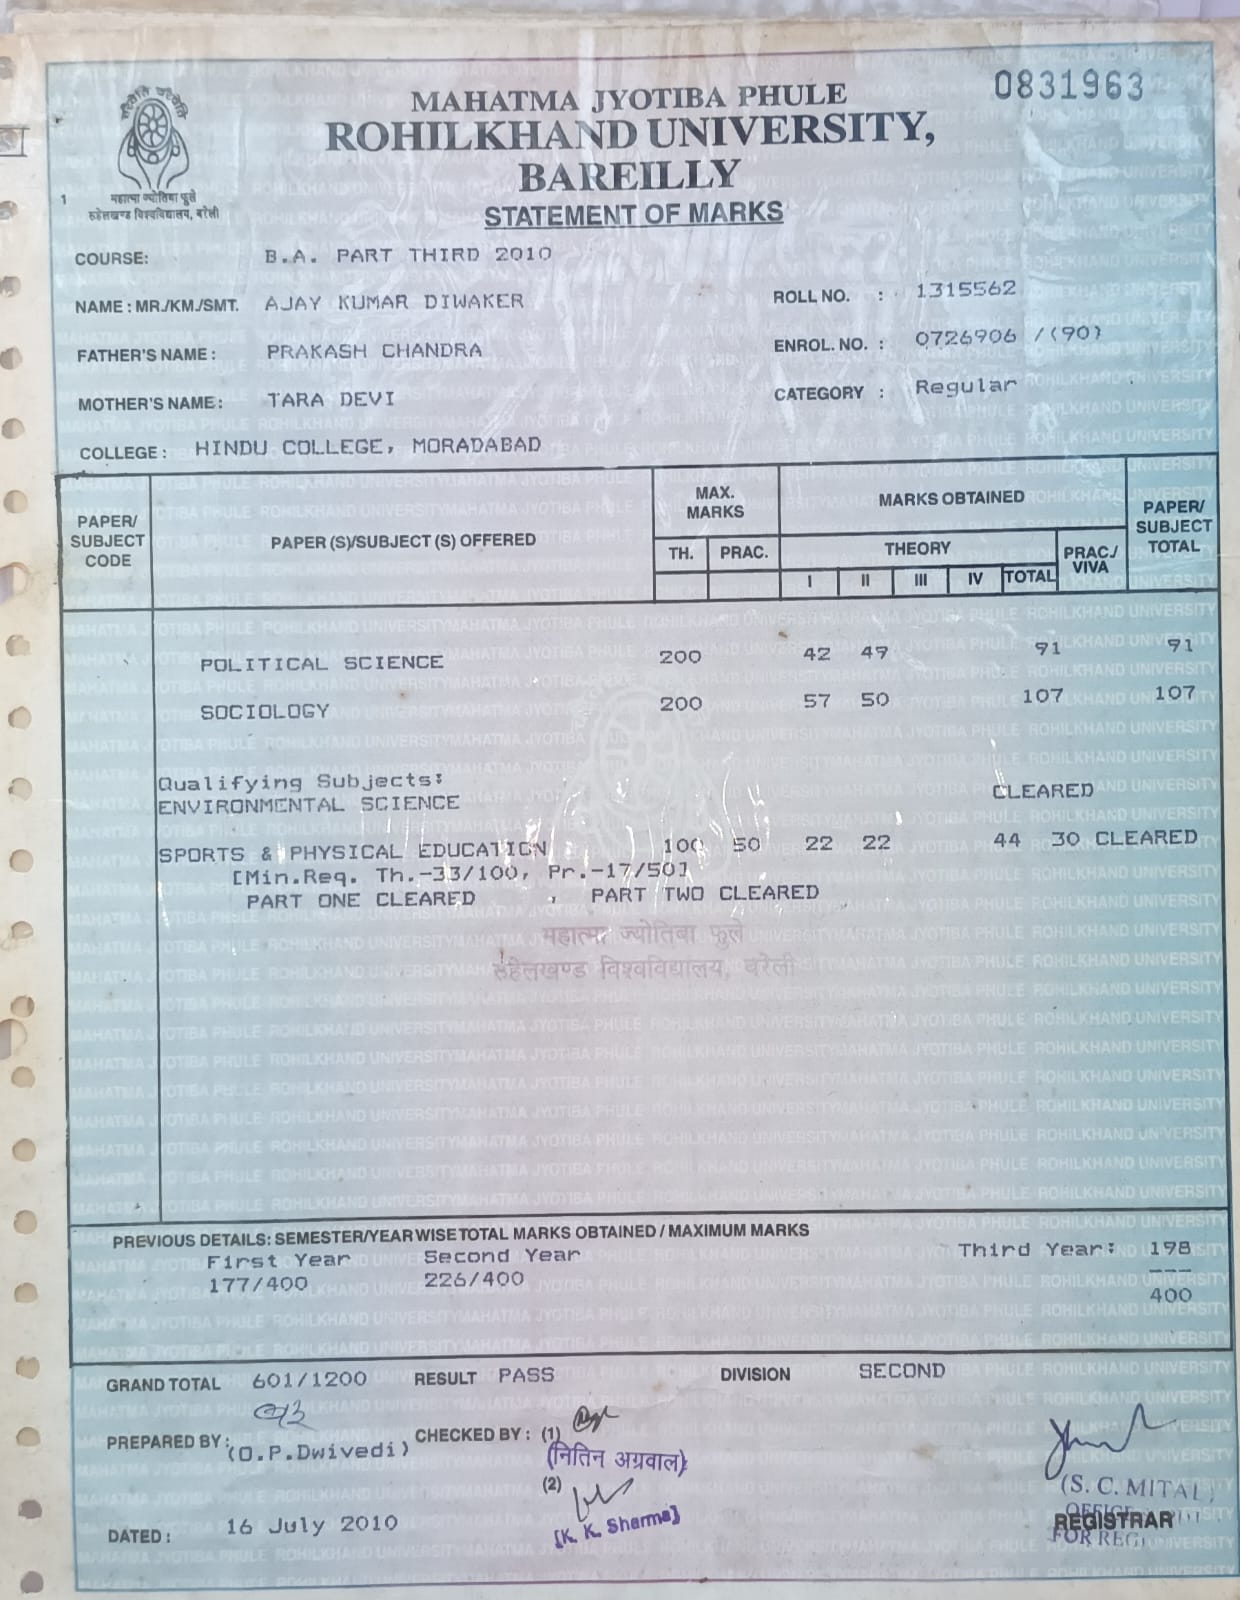 0831963
MAHATMA JYOTIBA PHULE
ROHILKHAND UNIVERSITY,
BAREILLY
STATEMENT OF MARKS
सरोवेति चरैवेति
1
महात्मा ज्योतिबा फुले
रुहेलखण्ड विश्वविद्यालय, बरेली
COURSE: B.A. PART THIRD 2010
NAME : MR./KM./SMT. AJAY KUMAR DIWAKER ROLL NO. : 1315562
FATHER'S NAME : PRAKASH CHANDRA ENROL. NO. : 0726906 /(90)
MOTHER'S NAME : TARA DEVI CATEGORY : Regular
COLLEGE : HINDU COLLEGE, MORADABAD
PAPER/ SUBJECT CODE PAPER (S)/SUBJECT (S) OFFERED MAX. MARKS MARKS OBTAINED PAPER/ SUBJECT TOTAL
TH. PRAC. THEORY PRAC./ VIVA
I II III IV TOTAL
POLITICAL SCIENCE 200 42 49 91 91
SOCIOLOGY 200 57 50 107 107
Qualifying Subjects:
ENVIRONMENTAL SCIENCE CLEARED
SPORTS & PHYSICAL EDUCATION 100 50 22 22 44 30 CLEARED
[Min.Req. Th.-33/100, Pr.-17/50]
PART ONE CLEARED , PART TWO CLEARED
महात्मा ज्योतिबा फुले
रुहेलखण्ड विश्वविद्यालय, बरेली
PREVIOUS DETAILS: SEMESTER/YEARWISE TOTAL MARKS OBTAINED / MAXIMUM MARKS
First Year Second Year Third Year: 198
177/400 226/400 ---
400
GRAND TOTAL 601/1200 RESULT PASS DIVISION SECOND
PREPARED BY : (O.P.Dwivedi) CHECKED BY : (1)
(नितिन अग्रवाल)
(2)
[K. K. Sharma]
(S. C. MITAL)
REGISTRAR
DATED : 16 July 2010